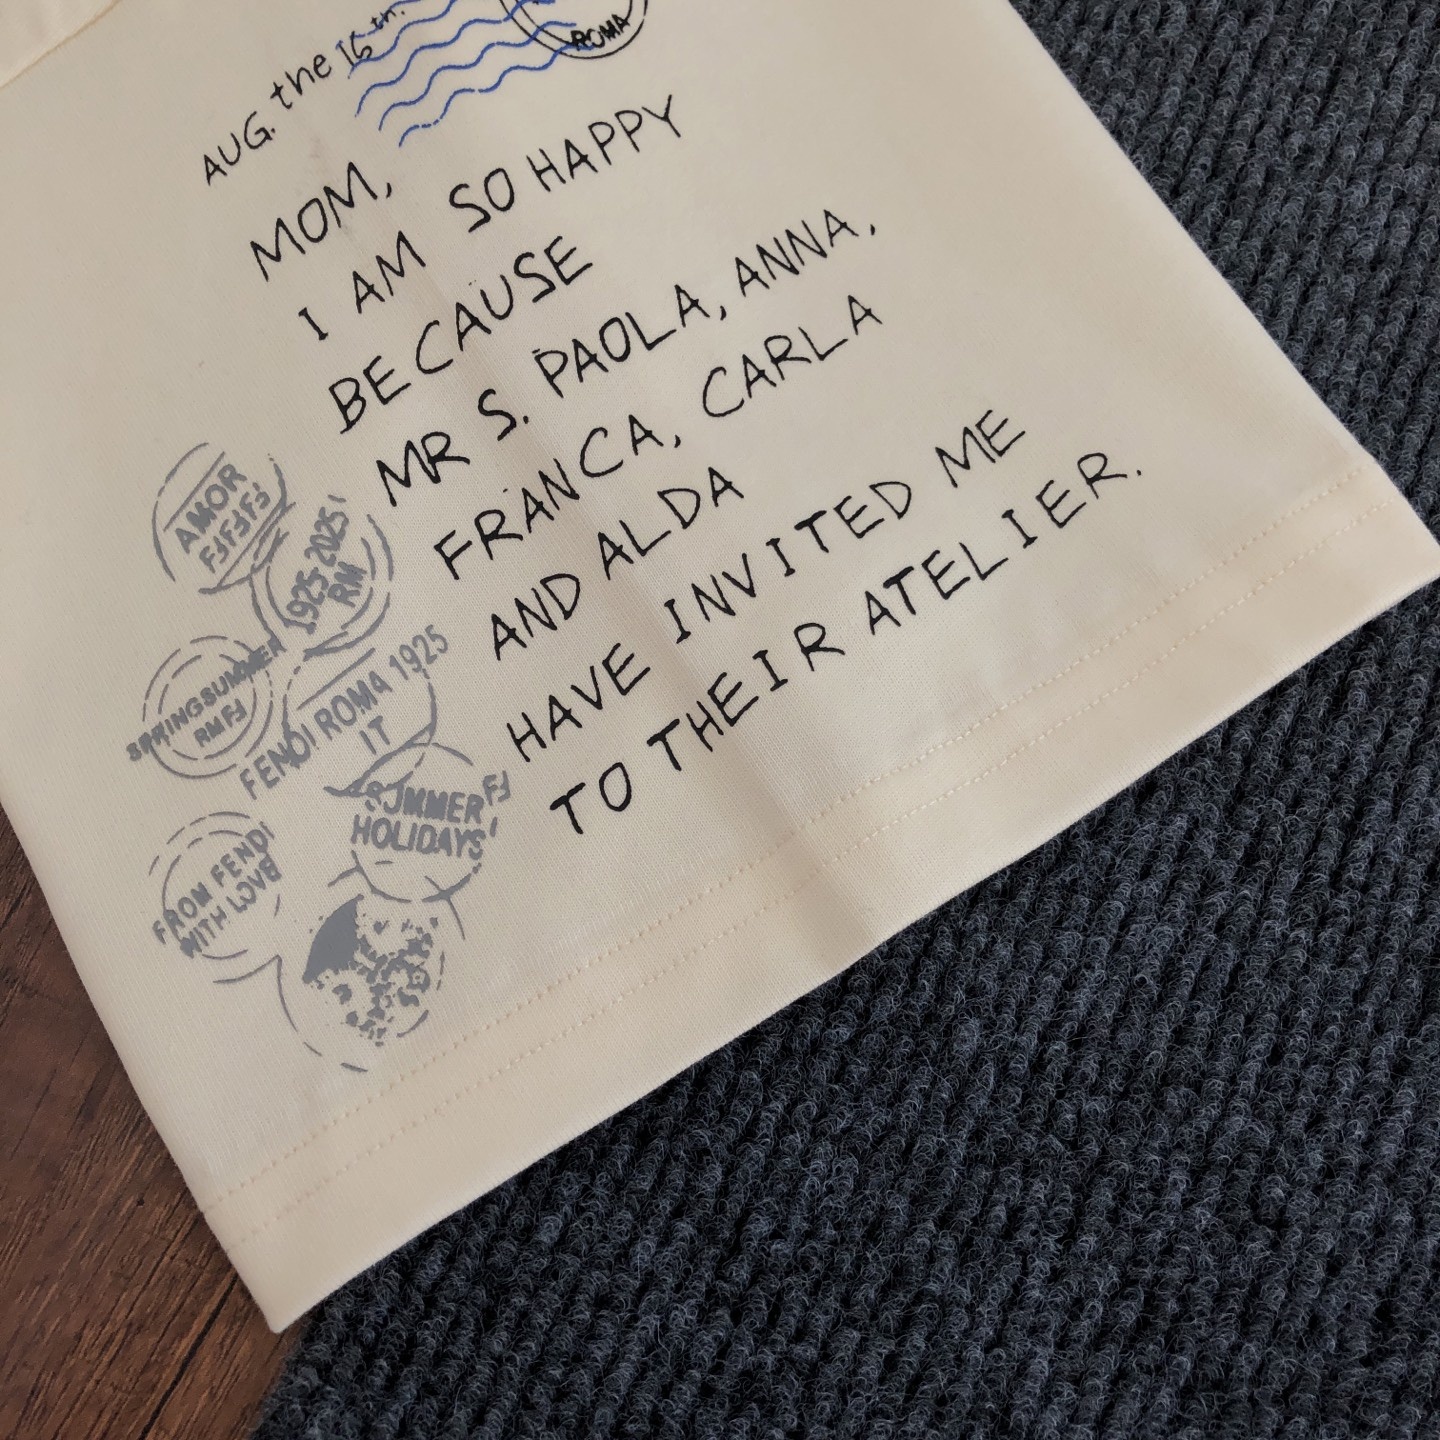 AUG. the 16th.
ROMA
MOM,
I AM SO HAPPY
BECAUSE
MR S. PAOLA, ANNA,
FRANCA, CARLA
AND ALDA
HAVE INVITED ME
TO THEIR ATELIER.
AMOR
FFFFFF
1925 2025
RM
SPRINGSUMMER
RMFF
FENDI ROMA 1925
IT
SUMMER FF
HOLIDAYS
FROM FENDI
WITH LOVE